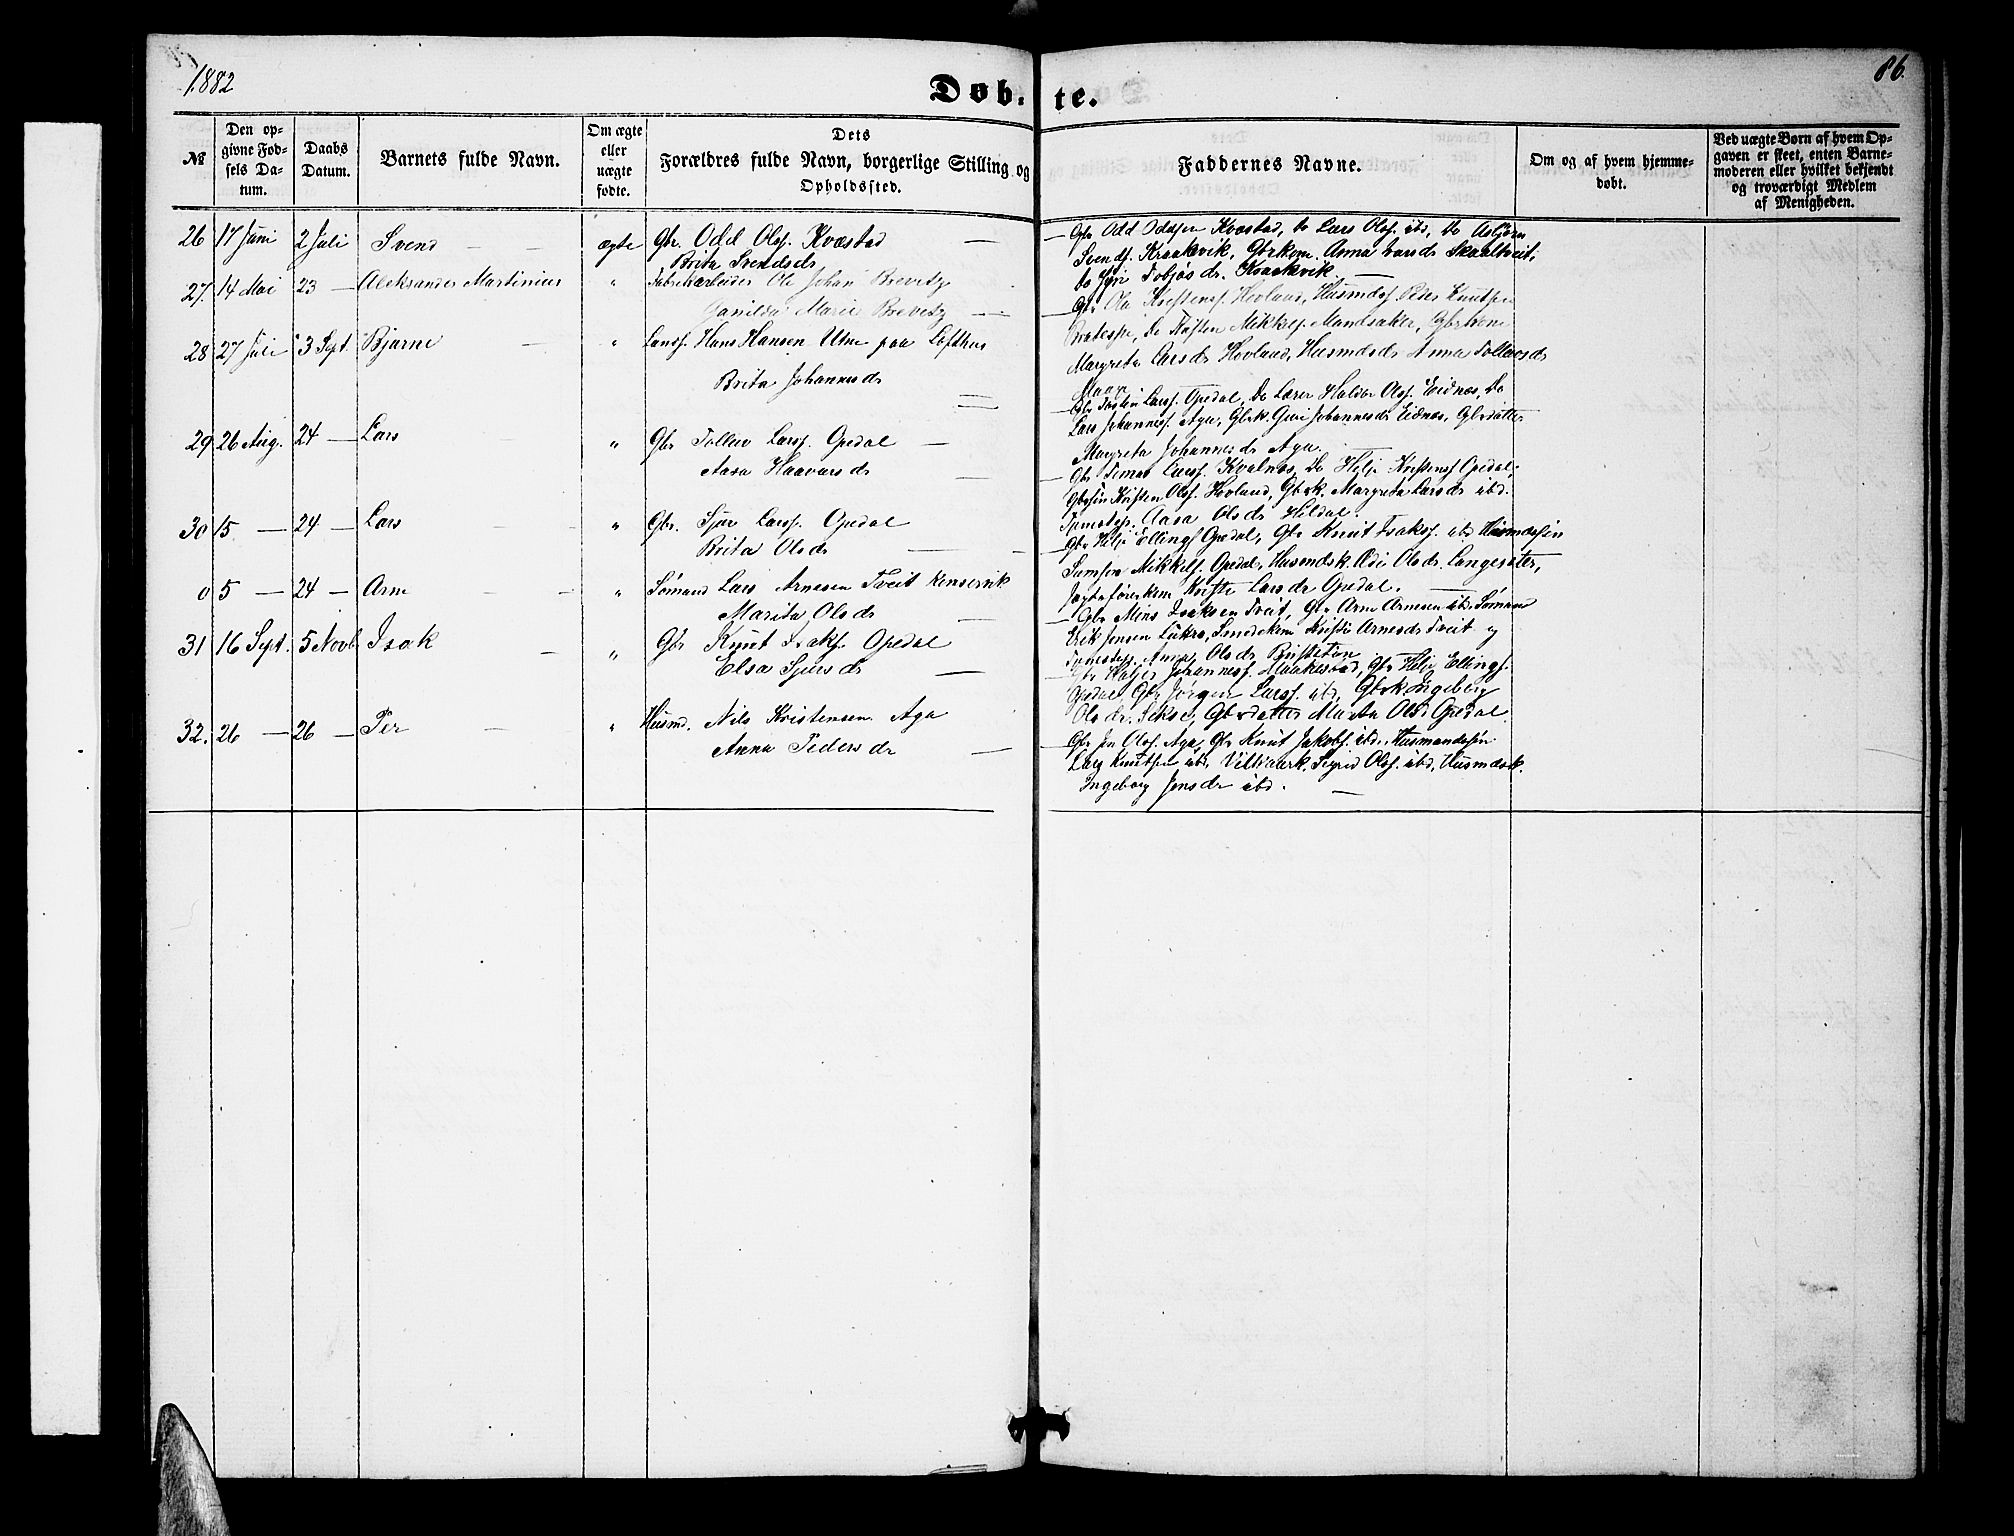 1882
86.
Døb-te.
№
Den opgivne Fødsels Datum.
Daabs Datum.
Barnets fulde Navn.
Om ægte eller uægte fødte.
Dets Forældres fulde Navn, borgerlige Stilling og Opholdssted.
Faddernes Navne.
Om og af hvem hjemmedøbt.
Ved uægte Børn af hvem Opgaven er skeet, enten Barnemoderen eller hvilket bekjendt og troværdigt Medlem af Menigheden.
26 17 Juni 2 Juli Svend — ægte Gbr. Odd Olss. Kvæstad —
Brita Svendsdr
— Gbr Odd Odssen Kvæstad, Do Lars Olss. ibd, Do Asbjørn
Svends. Kraakvik, Gbrkone Anna Ivarsdr Skaaltveit,
Do Torbjøsdr. Kraakvik —
27. 14 Mai 23 — Aleksander Martinius " Fabrikarbeider Ole Johan Brevetz
Marie Brevetz —
— Gbr Ola Kristens. Hovland, Husmdss. Peder Knutsen
Do Mikkels. Mandsaker, Gbrkone
Margreta Larsdr Hovland, Husmdsdr Anna Tollevsdr
28 27 Juli 3 Sept. Bjarne — " Hans Hansen Utne paa Lofthus
Brita Johannesdr —
— Gbr Larss. Opedal, Do Lærer Haldor Olss. Eidnes, Do
Lars Johanness. Aga, Gbrk. Guri Johannesdr Eidnes, Gbrdatter
Margreta Johannesdr Aga. —
29 26 Aug. 24 — Lars " Gbr Tollev Larss. Opedal —
Aasa Haavarsdr —
— Gbr Larss. Kvalnes, Do Helje Kristenss Opedal,
Gbrsøn Kristen Olss. Hovland, Gbrk. Margreta Larsdr ibd.
Tjenestep. Aasa Olsdr Hildal.
30 15 — 24 — Lars — " Gbr. Sjur Larss. Opedal
Brita Olsdr —
— Gbr Helje Ellings Opedal, Gbr Knut Isakss. ibd Husmdssøn
Samson Mikkels. Opedal, Husmdsk. Olsdr. Langesæter,
Larsdr Opedal. —
0 5 — 24 — Arne — " Sømand Lars Arnesen Tveit Kinservik
Marita Olsdr —
— Gbr Isaksen Tveit, Gbr Arne Arnesen ibd. Sømand
Erik Jensen Lutro, Smedekone Kristi Arnesdr Tveit og
Tjenestep. Anna Olsdr
31 16 Sept. 5 Novb Isak — " Gbr Knut Isaks. Opedal
Elsa Sjursdr —
— Gbr Johanness. Maakestad, Gbr Helje Ellings.
Opedal Gbr Jørgen Larss. ibd, Gbrk Ingeborg
Olsdr. Sekse, Gbrdatter Marta Olsd Opedal.
32. 26 — 26 — Per — " Husmd. Nils Kristensen Aga
Anna Pedersdr —
— Gbr Olss. Aga, Gbr Knut Jakobs. ibd., Husmandssøn
Lars Knutsen ibd, Sigrid Olsd. ibd, Husmdsk.
Ingeborg Jensdr ibd. —